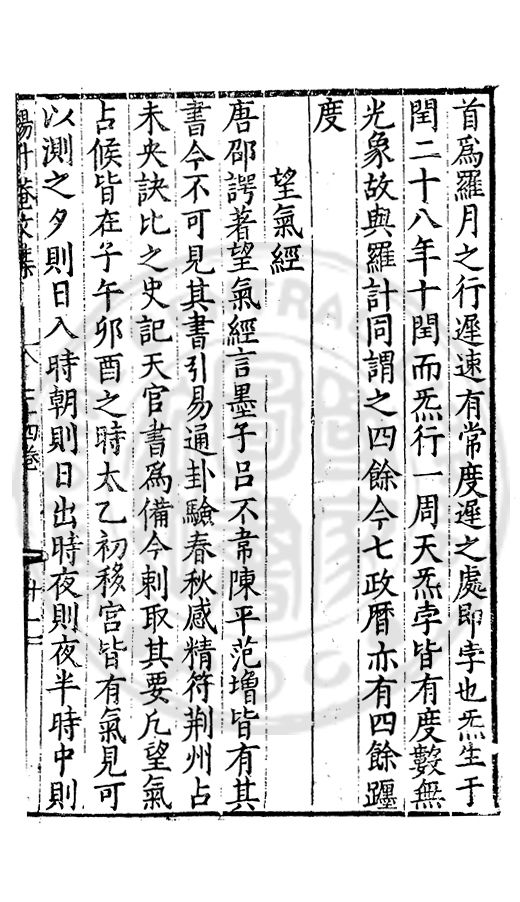 首為羅月之行遲速有常度遲之處即孛也炁生于
閏二十八年十閏而炁行一周天炁孛皆有度數無
光象故與羅計同謂之四餘今七政曆亦有四餘躔
度
望氣經
唐邵諤著望氣經言墨子吕不韋陳平范增皆有其
書今不可見其書引易通卦驗春秋感精符荆州占
未央訣比之史記天官書為備今剌取其要凢望氣
占候皆在子午卯酉之時太乙初移宮皆有氣見可
以測之夕則日入時朝則日出時夜則夜半時中則
升菴文集